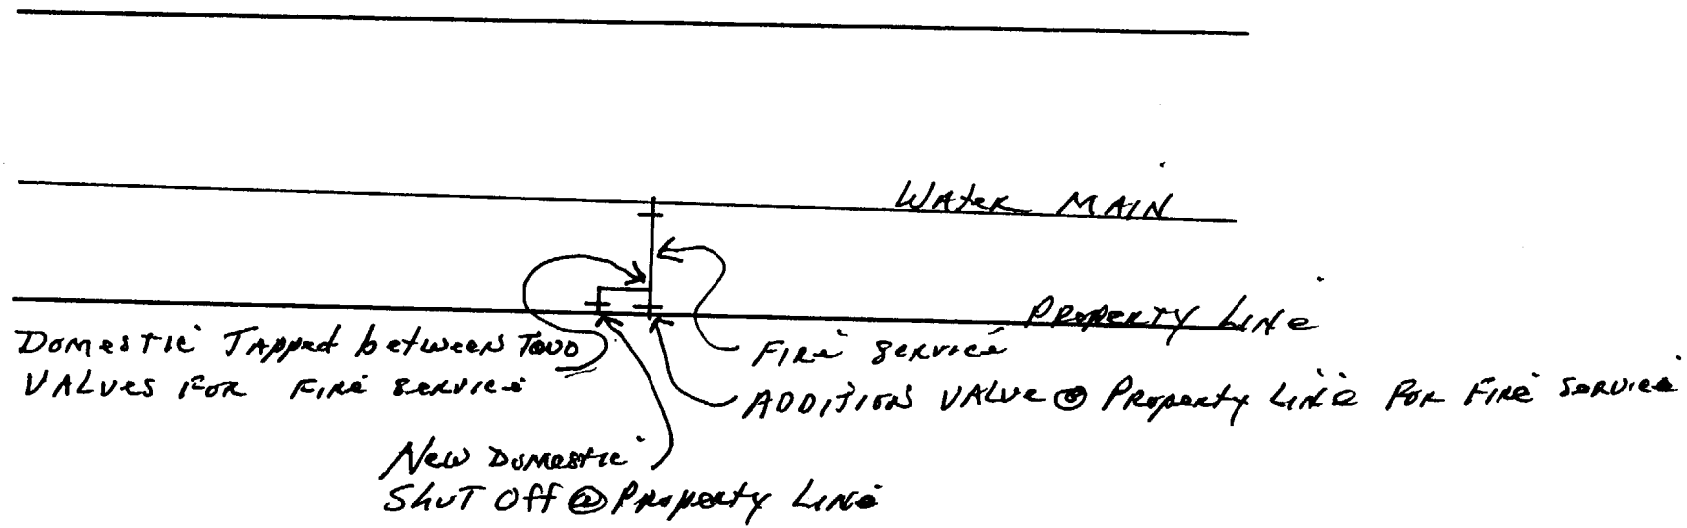 Water MAIN
Property Line
Domestic Tapped between Two
VALVES For Fire Service
Fire Service
ADDITION VALVE @ Property Line For Fire Service
New Domestic
Shut Off @ Property Line